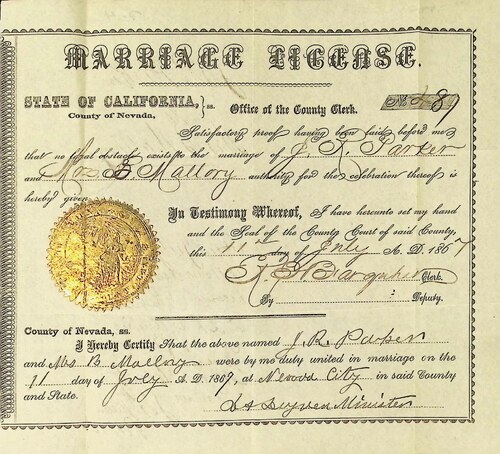 MARRIAGE LICENSE.
STATE OF CALIFORNIA, } ss.
County of Nevada.
Office of the County Clerk.
89
Satisfactory proof having been laid before me
that no legal obstacle exists to the marriage of J. F. Parker
and Mrs B. Mallory authority for the celebration thereof is
hereby given
In Testimony Whereof, I have hereunto set my hand
and the Seal of the County Court of said County,
this 11th day of July A. D. 1867
Farquhar Clerk.
By Deputy.
County of Nevada, ss.
I Hereby Certify That the above named J. R. Parker
and Mrs B Mallory were by me duly united in marriage on the
11 day of July A. D. 1867, at Nevada City in said County
and State.
Minister